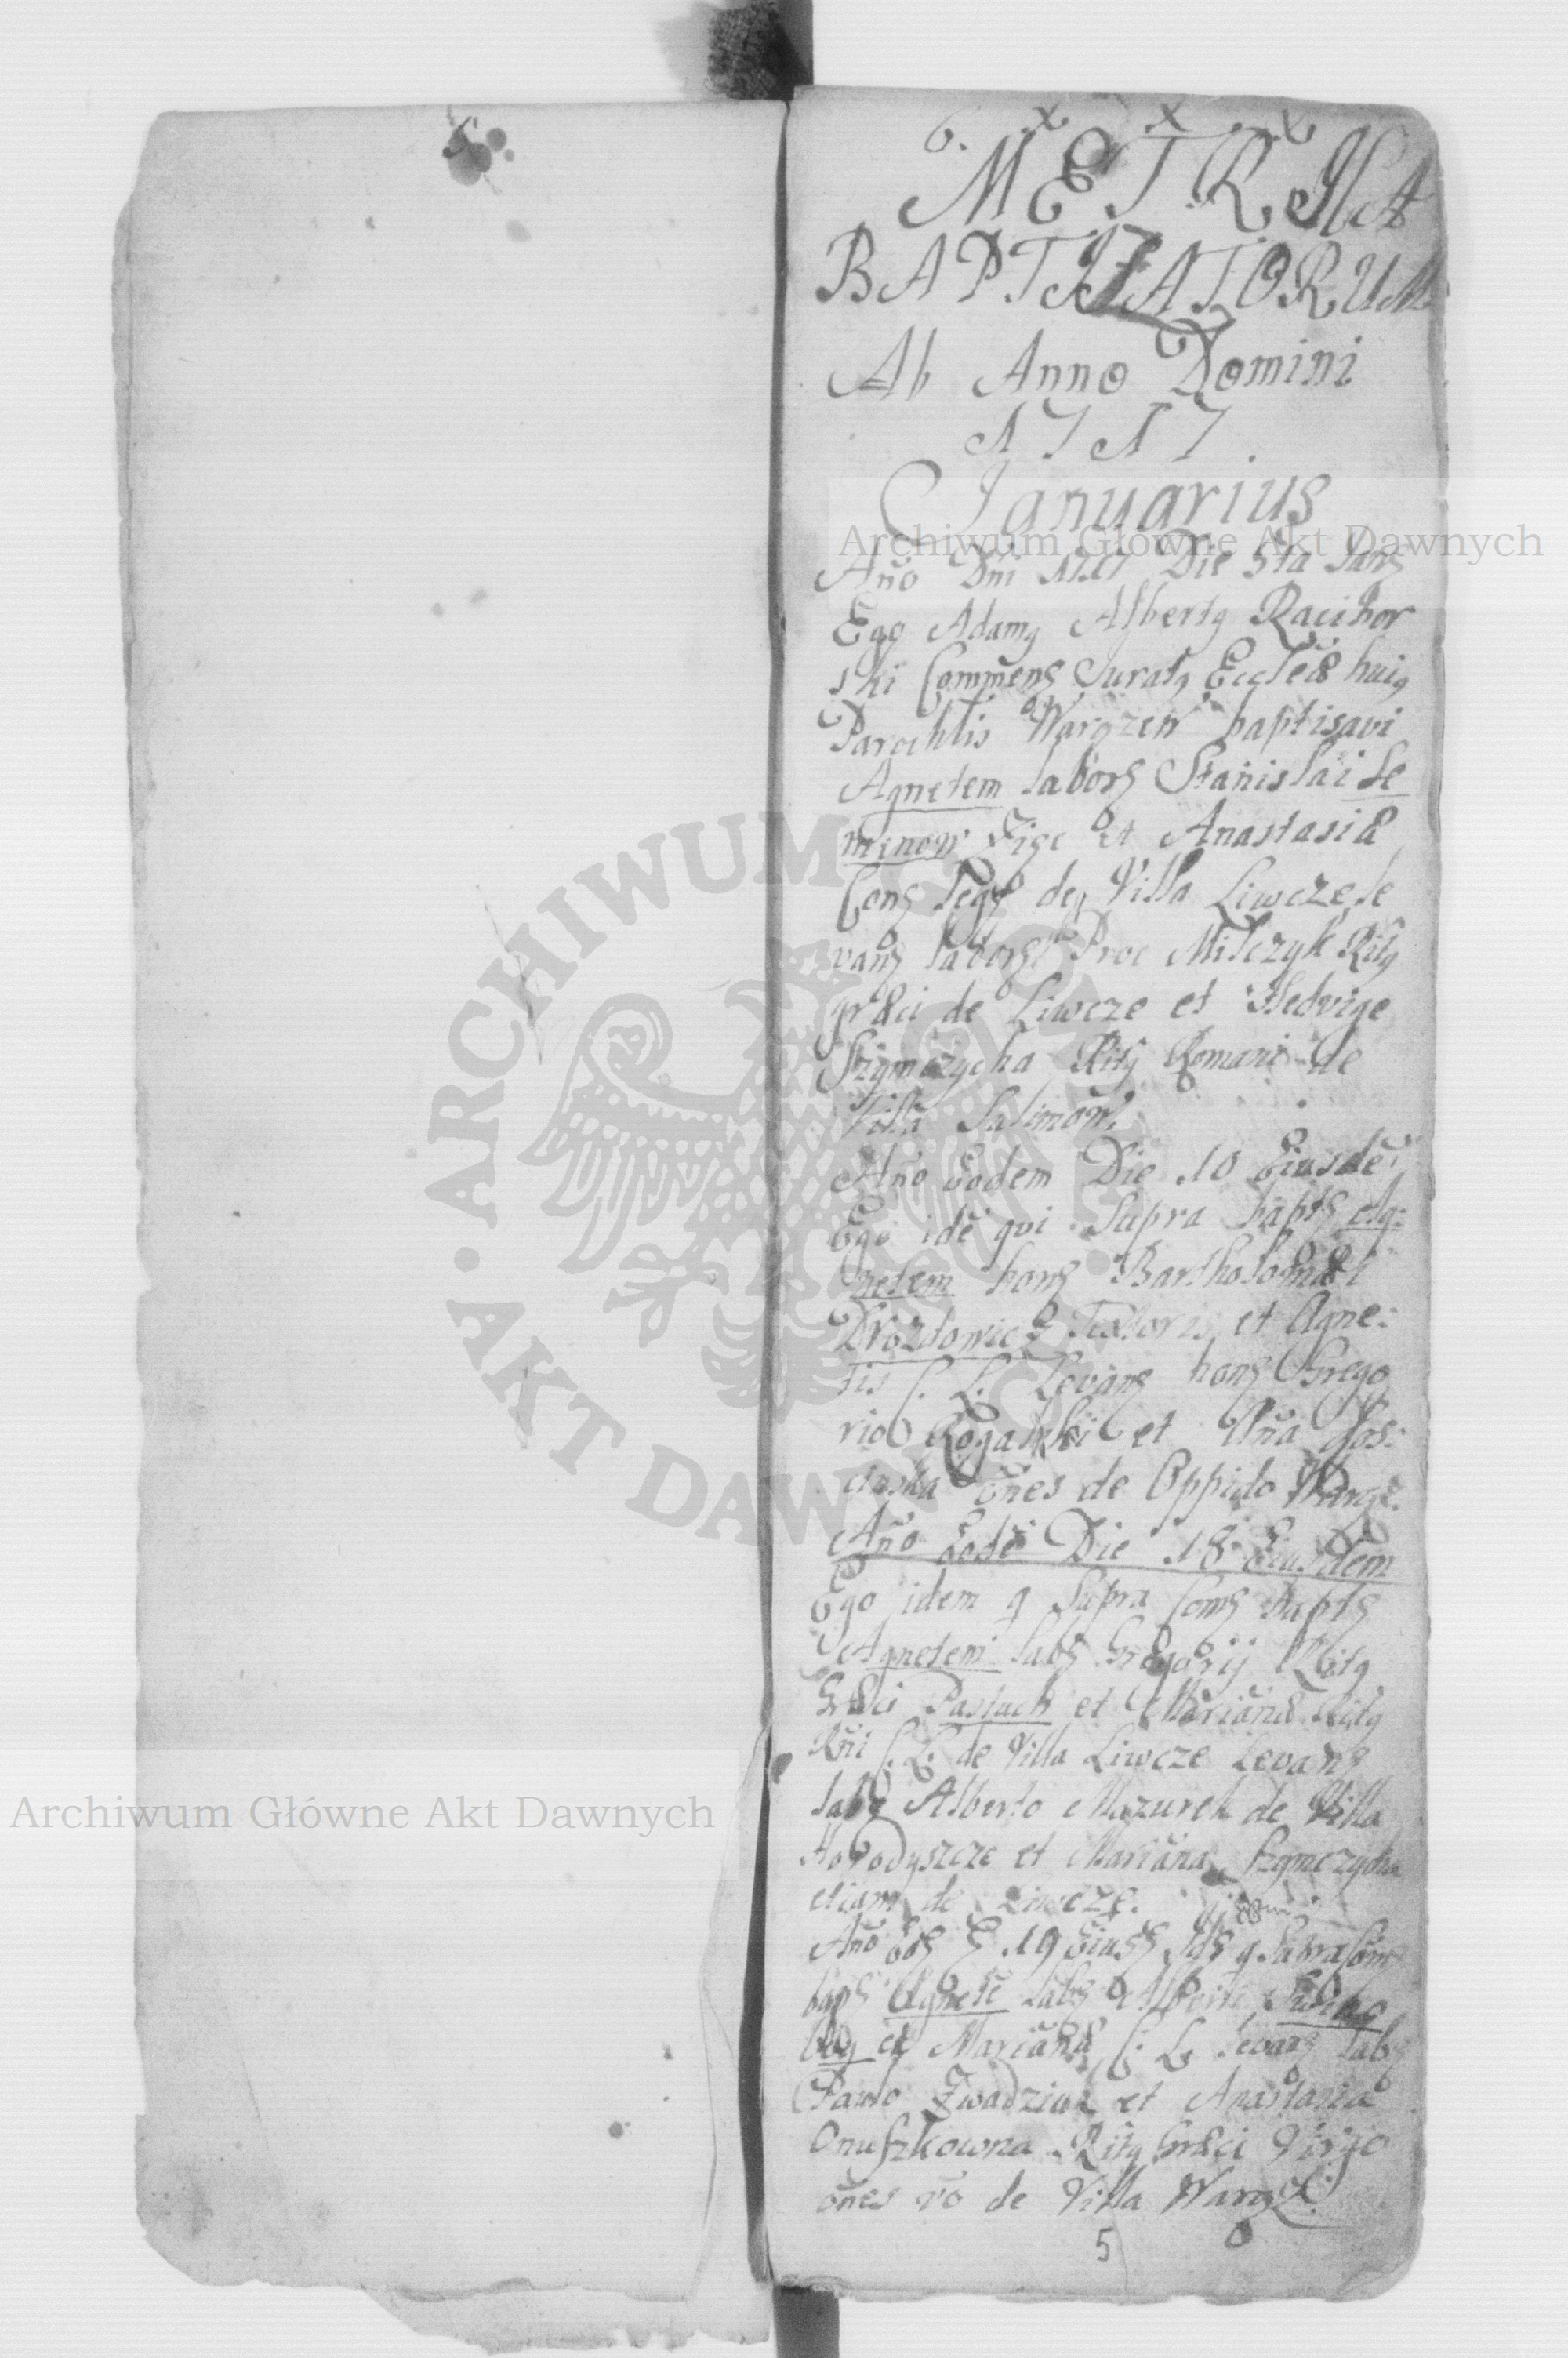 METRICA
BAPTIZATORUM
Ab Anno Domini
1717.
Januarius
Archiwum Główne Akt Dawnych
Año Dñi 1717 Die 5ta
Ego Adamg Albertg Racibor
ski Commens Curatg Eccleæ huig
Parochlis Waręzen baptisavi
Agnetem labors Stanislai Se
menow et Anastasiæ
de Villa Liwcze le
vans labors Proc Milczyk Ritg
græci de Liwcze et Hedvige
Szymczycha Ritg Romani de
Villa
Año Eodem Die 10 Eiusdē
Ego idē qui Supra bapts Ag:
netem hons Bartholomæi
Drozdowicz Textoris et Agne:
tis C. L. Levans hons Grego
rio Rogalski et Aña Gos:
oñes de Oppido Waręz.
Año Eodē Die 18 Eiusdem
Ego idem q Supra Coms bapts
Agnetem labs Gregorij Ritg
Græci Pastuch et Mariañæ Ritg
Rñi C. L. de Villa Liwcze Levans
labs Alberto Mazurek de Villa
Horodyszcze et Mariana Szymczycha
etiam de Liwcze.
Año Eod 19 q Supra Com
baps Agnetē labs Alberti
et Mariañæ C. L. levans labs
Pawlo et Anastasia
Onuszkowna Ritg Græci Virgo
oñes vō de Villa Waręz
5
Archiwum Główne Akt Dawnych
ARCHIWUM GŁÓWNE
AKT DAWNYCH